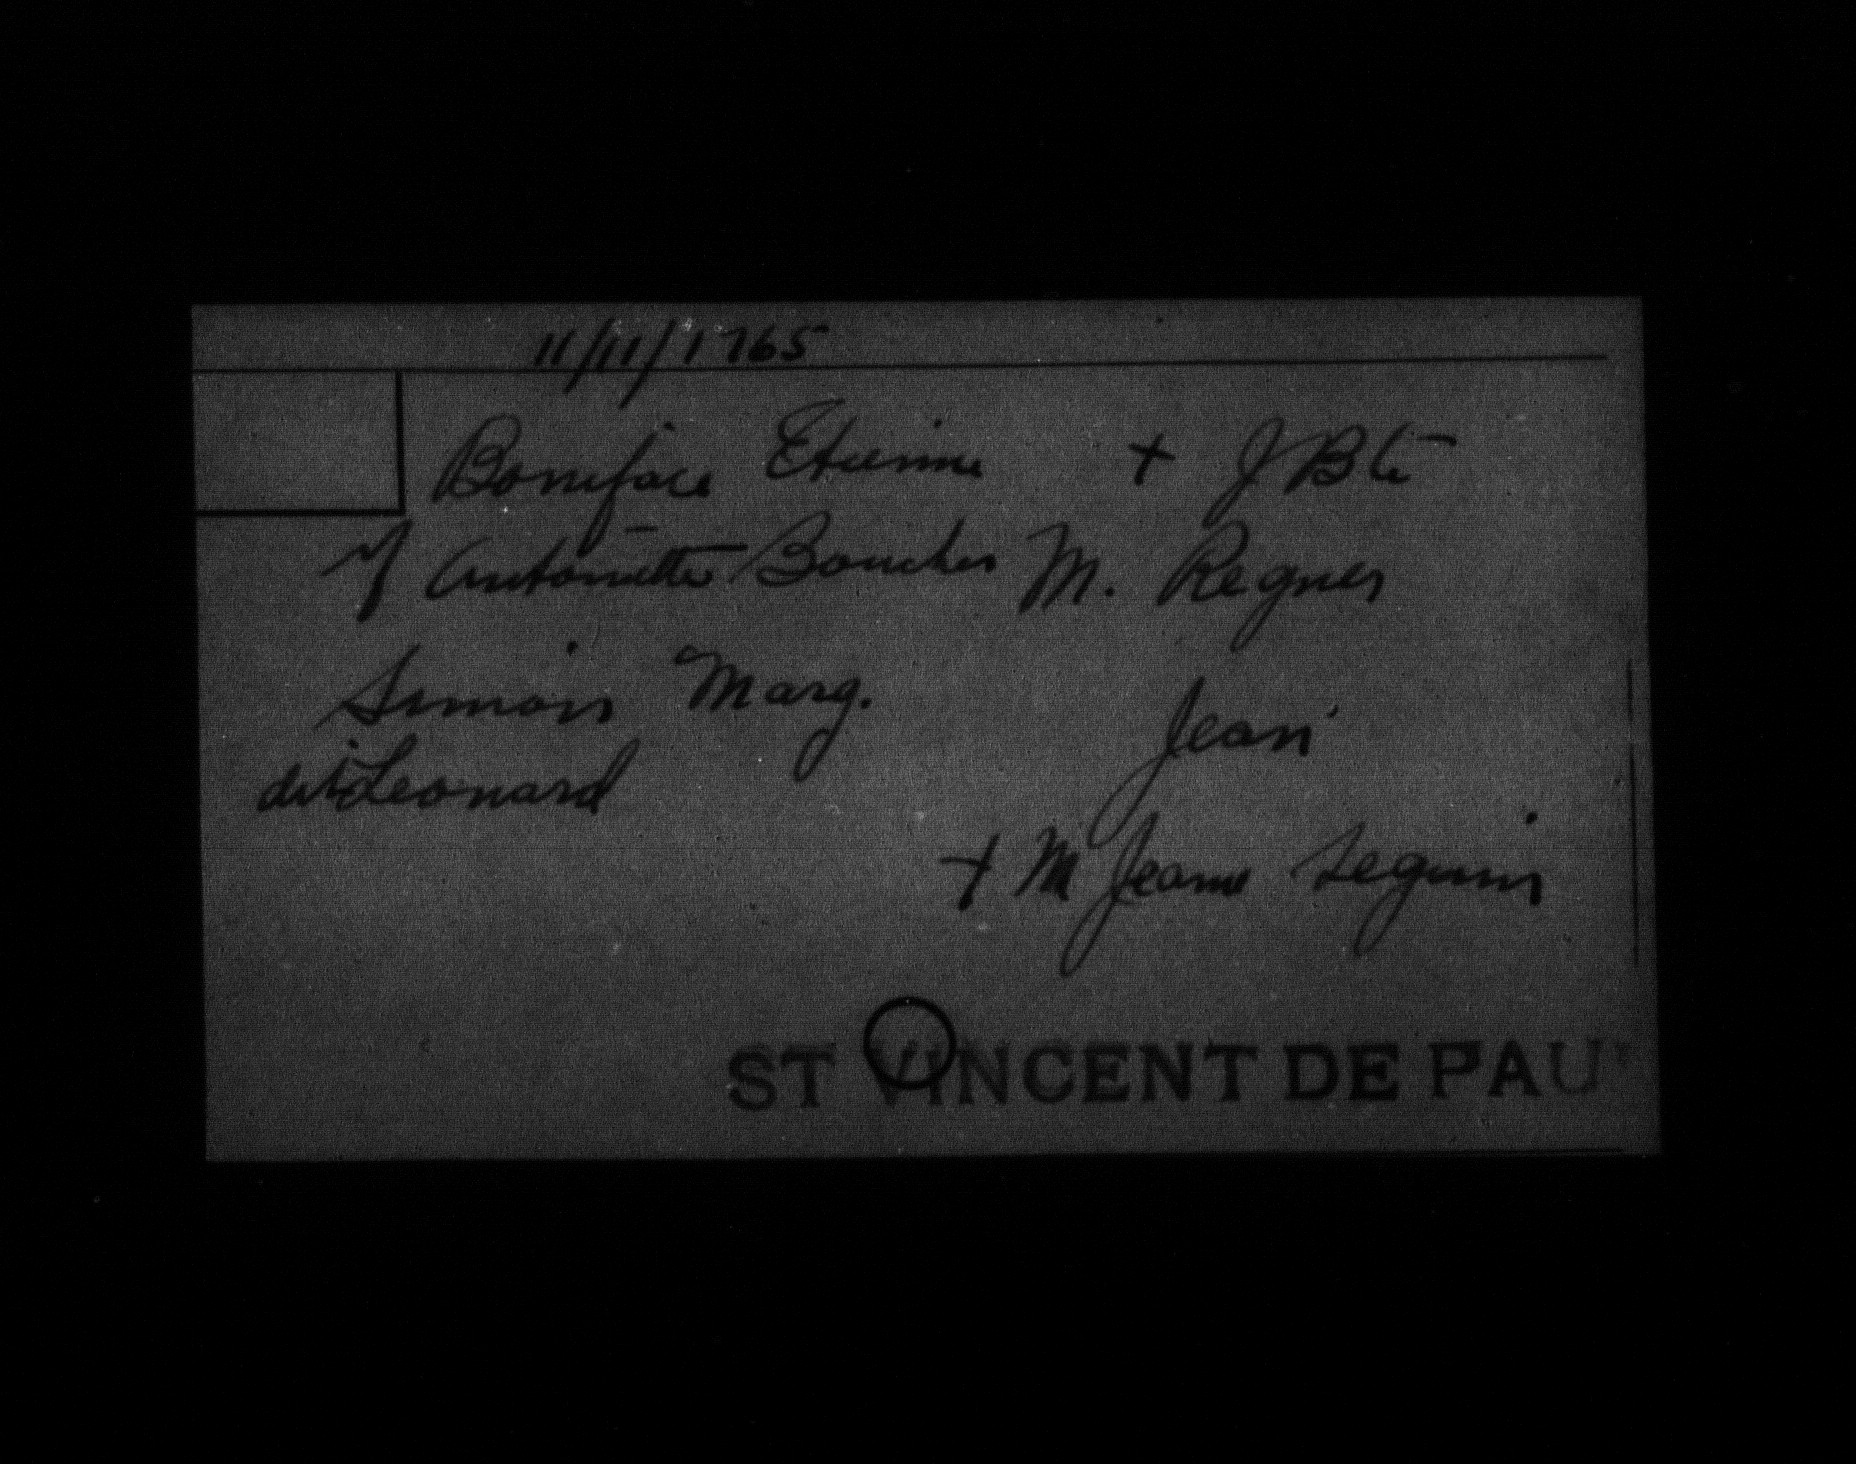 11/11/1765
Boniface Etienne + J Bte
V Antoinette Boucher M. Regner
Simon Marg. Jean
dit Leonard
+ M Jeanne Seguin
ST VINCENT DE PAUL